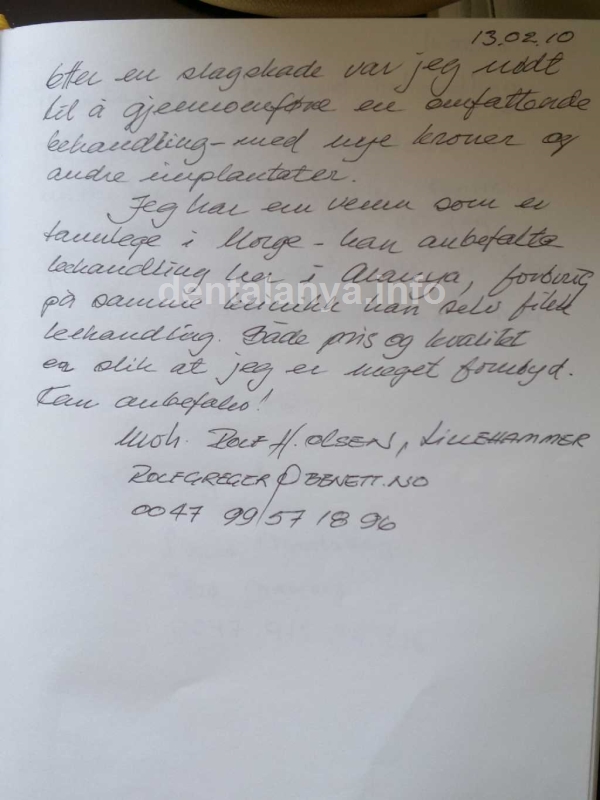 13.02.10
Etter en slagskade var jeg nødt
til å gjennomføre en omfattende
behandling - med nye kroner og
andre implantater.
Jeg har en venn som er
tannlege i Norge - han anbefalte
behandling her i Alanya, forøvrig
på samme klinikk han selv fikk
behandling. Både pris og kvalitet
er slik at jeg er meget fornøyd.
Kan anbefales!
Mvh. ROLF H. OLSEN, LILLEHAMMER
ROLFGREGER@BENETT.NO
0047 99 57 18 96
dentalanya.info